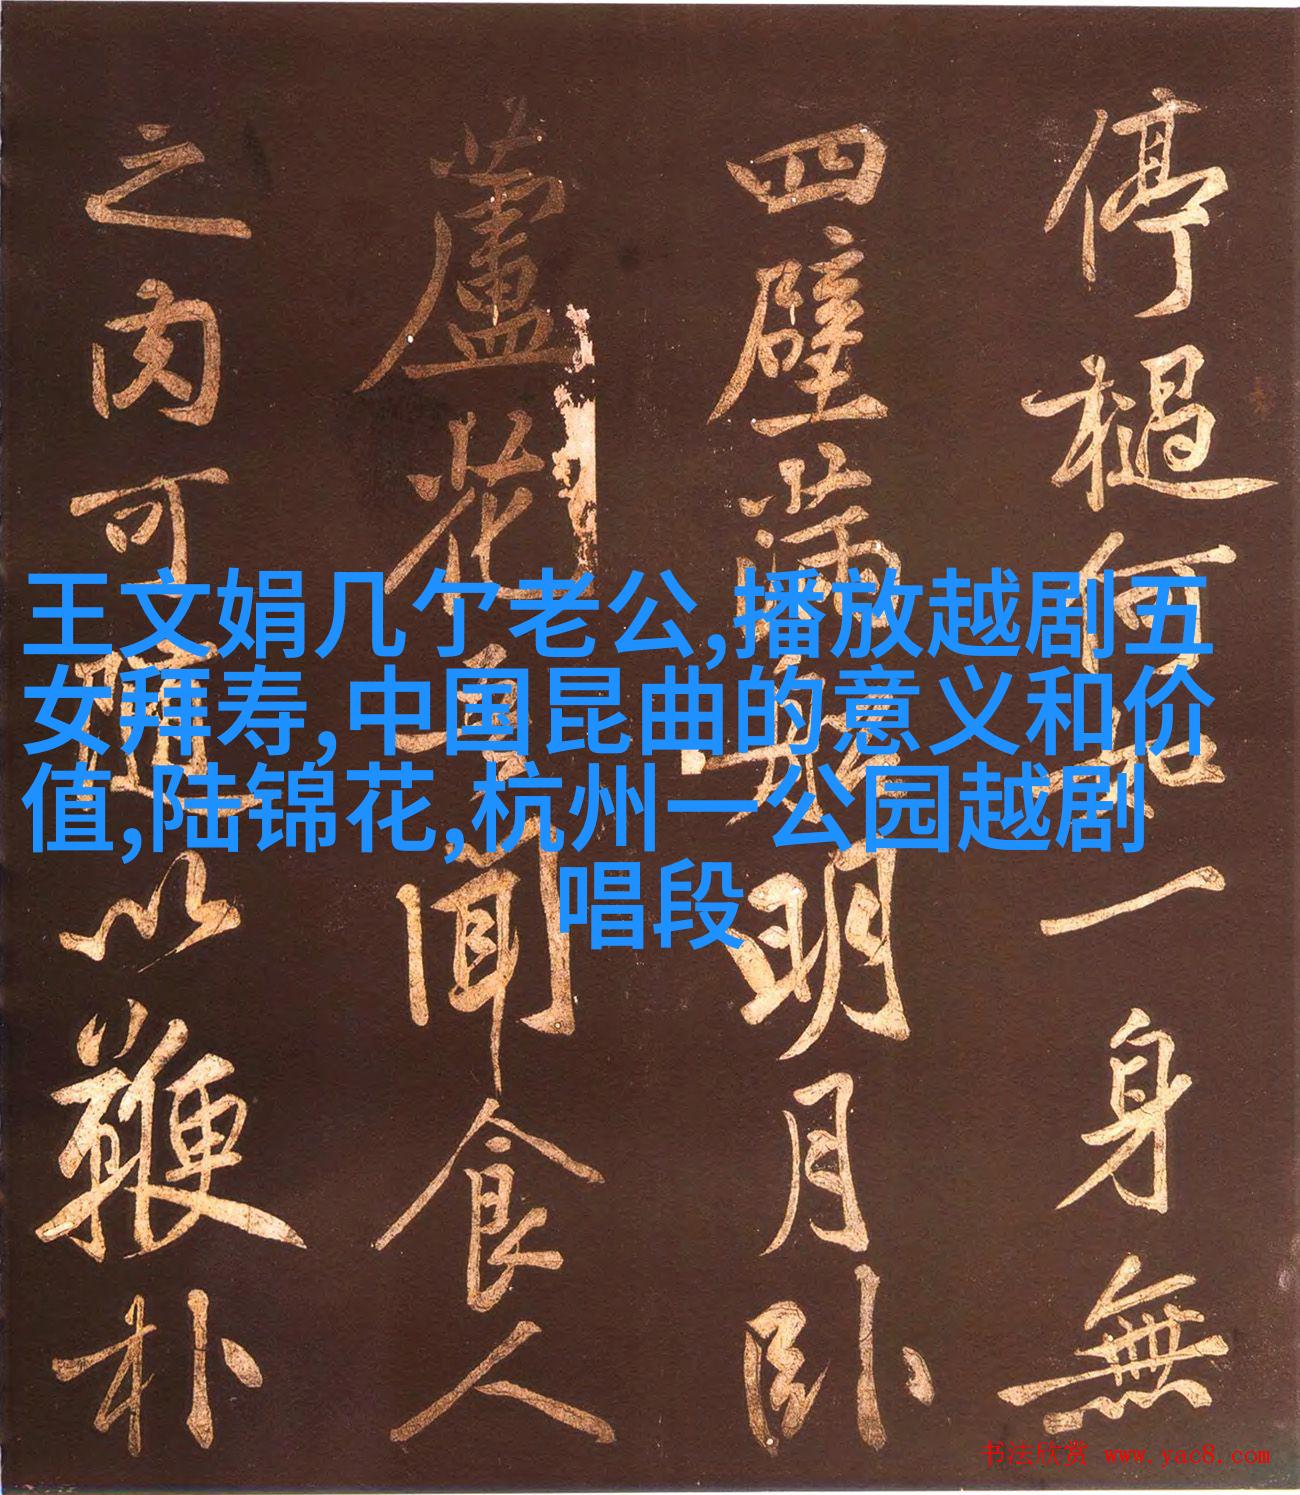 王文娟几亇老公,播放越剧五
女拜寿,中国昆曲的意义和价
值,陆锦花,杭州一公园越剧
唱段
停檛何一身無
四壁滿明月卧
蘆花聞食人
之肉可隨以鞭朴
书法欣赏 www.yac8.com